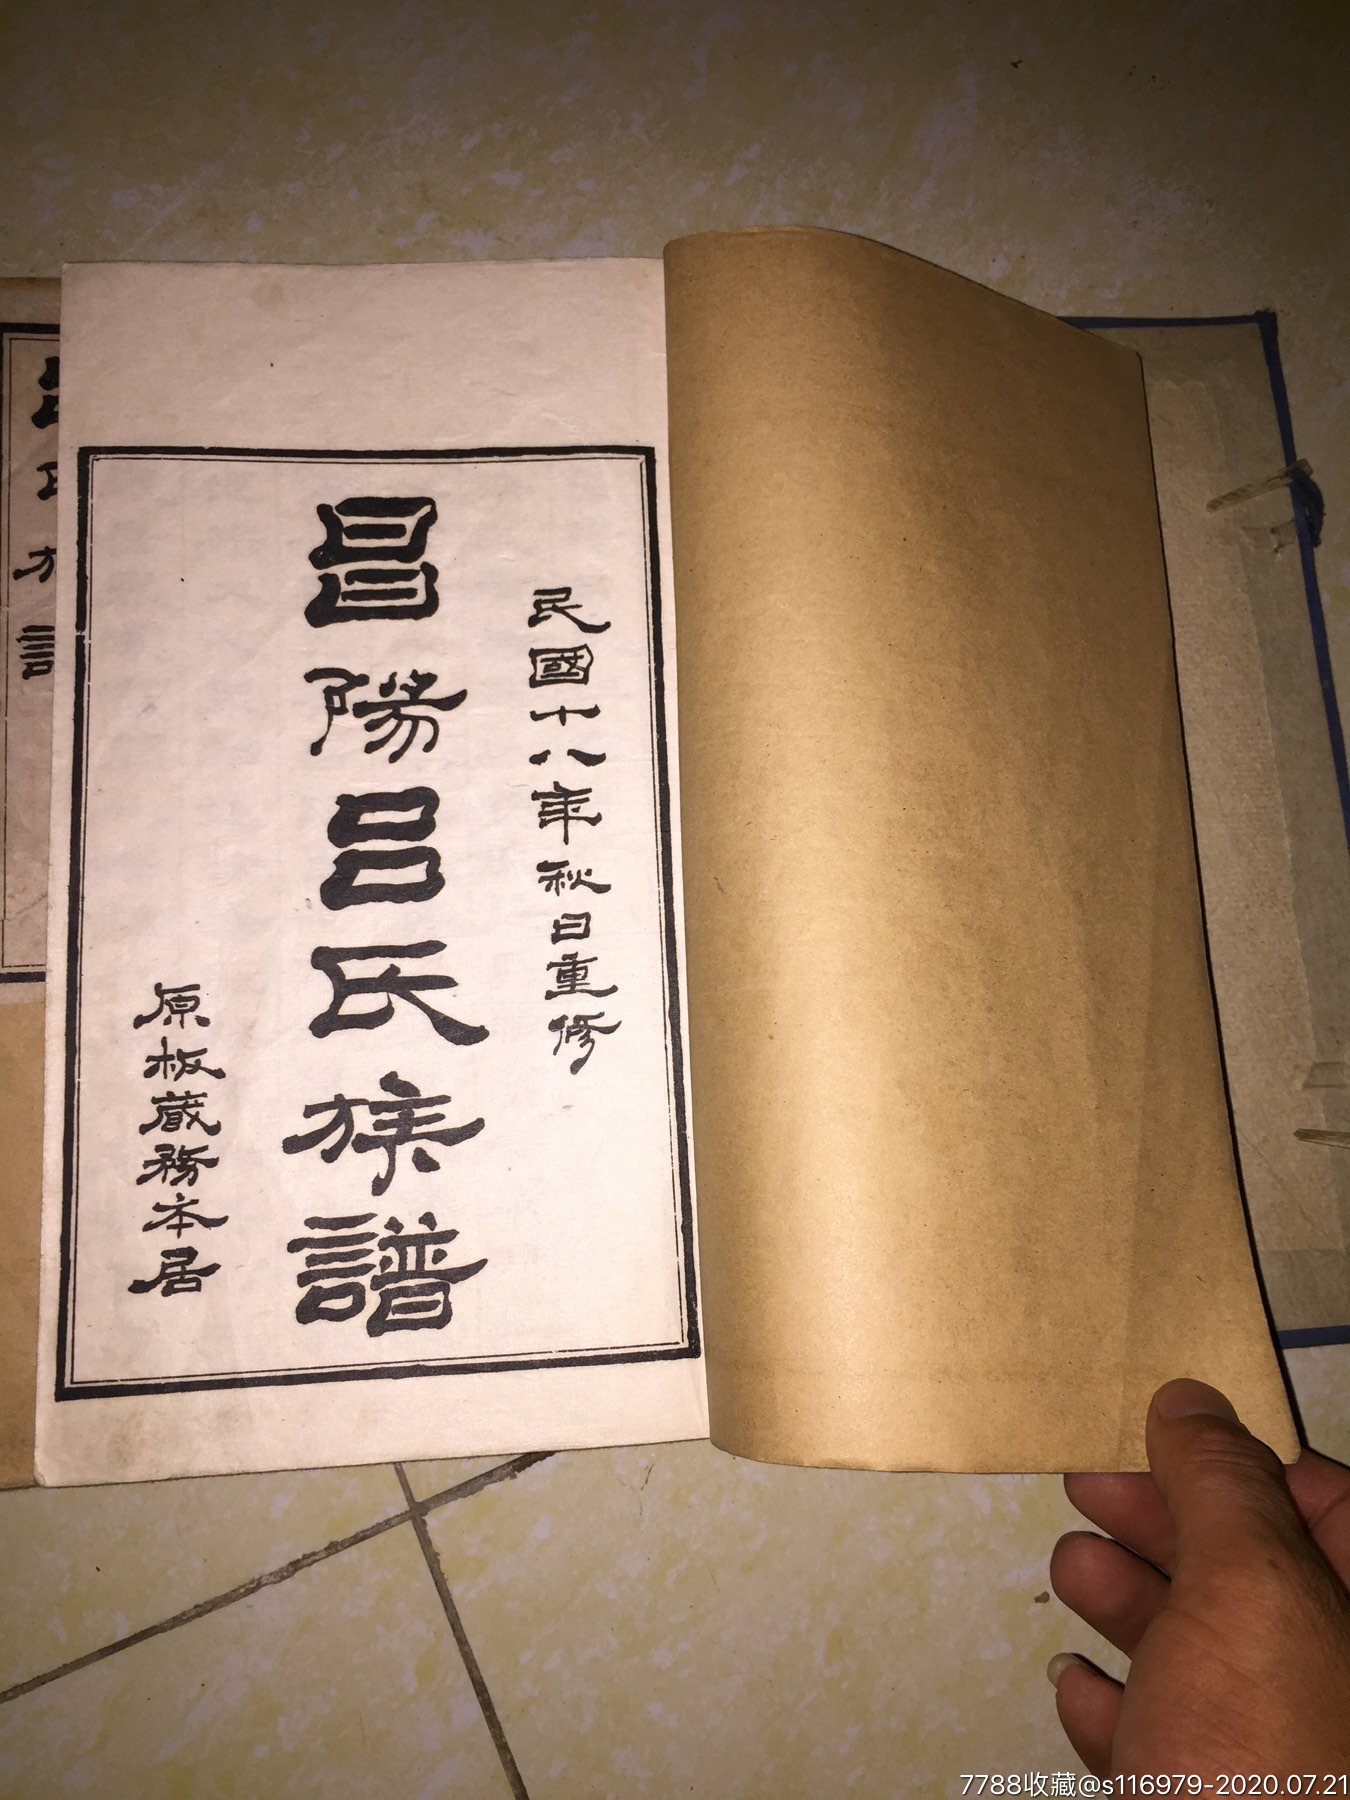 民國十八年秋日重修
昌陽呂氏族譜
原板藏務本居
氏族譜
7788收藏@s116979-2020.07.21